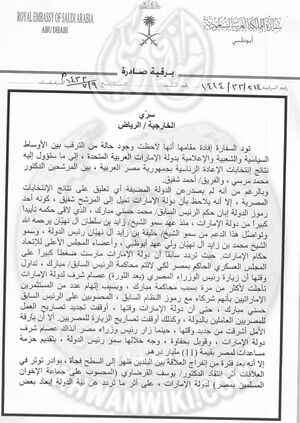 ROYAL EMBASSY OF SAUDI ARABIA
ABU DHABI
أبوظبي
برقية صادرة
سري
الخارجية / الرياض
تود السفارة إفادة مقامها أنها لاحظت وجود حالة من الترقب بين الأوساط
السياسية والشعبية والإعلامية بدولة الإمارات العربية المتحدة ، إلى ما ستؤول إليه
نتائج إنتخابات الإعادة الرئاسية بجمهورية مصر العربية ، بين المرشحين الدكتور
محمد مرسي ، والفريق/ أحمد شفيق.
وبالرغم من أنه لم يصدر عن الدولة المضيفة أي تعليق على نتائج الإنتخابات
المصرية ، إلا أنه يلاحظ بأن دولة الإمارات تميل إلى المرشح شفيق ، كونه أحد
رموز الدولة إبان حكم الرئيس السابق/ محمد حسني مبارك ، الذي لاقى حكمه تأييداً
كبيراً من دولة الإمارات ، منذ عهد سمو الشيخ/ زايد بن سلطان آل نهيان يرحمه الله
وتواصل هذا الدعم من سمو الشيخ/ خليفة بن زايد آل نهيان رئيس الدولة ، وسمو
الشيخ محمد بن زايد آل نهيان ولي عهد أبوظبي ، وأعضاء المجلس الأعلى للإتحاد
حكام الإمارات. حيث تردد سابقاً أن دولة الإمارات مارست ضغطاً كبيراً على
المجلس العسكري الحاكم بمصر لكي لا تتم محاكمة الرئيس السابق/ مبارك ، تداول
وقتها أن زيارة رئيس الوزراء المصري (بعد الثورة) عصام شرف لدولة الإمارات
تأجلت لأكثر من مرة بسبب محاكمة مبارك ، وبسبب إتهام عدد من المستثمرين
الإماراتيين بأنهم شركاء مع رموز النظام السابق ، المحسوبين على الرئيس السابق
حسني مبارك ، حتى أن دولة الإمارات وقتها ، أوقفت تجديد تصاريح العمل
للمصريين العاملين بالدولة ، وكذلك أوقفت تصاريح الزيارة للمصريين. ألا أن بارقة
الأمل أشرقت من جديد وقتها ، حينما زار رئيس وزراء مصر آنذاك عصام شرف
دولة الإمارات ، وقوبل بحفاوة ، وجه خلالها سمو رئيس الدولة ، بتقديم حزمة
مساعدات لمصر بقيمة (11) مليار درهم.
إلا أنه بعد فترة من إنفراج العلاقة بين البلدين ظهر إلى السطح فجأة ، بوادر توتر في
العلاقات أثر إنتقاد الدكتور/ يوسف القرضاوي (المحسوب على جماعة الإخوان
المسلمين بمصر) لدولة الإمارات ، على أثر ما تردد عن نية الدولة إبعاد بعض